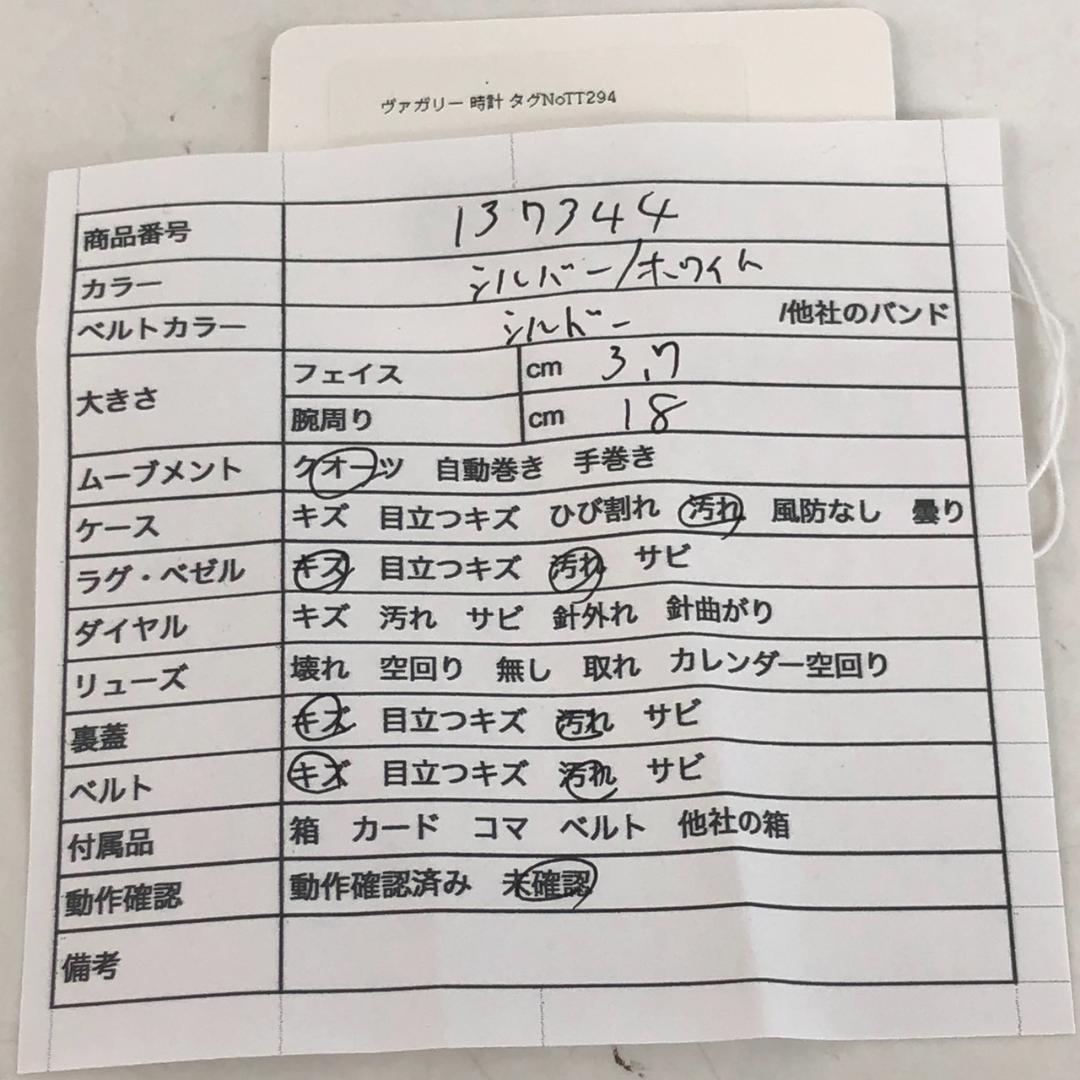 ヴァガリー 時計 タグNoTT294
商品番号 137344
カラー シルバー/ホワイト
ベルトカラー シルバー /他社のバンド
大きさ フェイス cm 3.7
腕周り cm 18
ムーブメント クオーツ 自動巻き 手巻き
ケース キズ 目立つキズ ひび割れ 汚れ 風防なし 曇り
ラグ・ベゼル キズ 目立つキズ 汚れ サビ
ダイヤル キズ 汚れ サビ 針外れ 針曲がり
リューズ 壊れ 空回り 無し 取れ カレンダー空回り
裏蓋 キズ 目立つキズ 汚れ サビ
ベルト キズ 目立つキズ 汚れ サビ
付属品 箱 カード コマ ベルト 他社の箱
動作確認 動作確認済み 未確認
備考